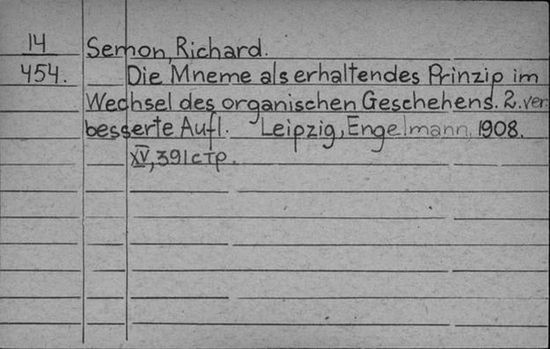 14 Semon, Richard.
454. Die Mneme als erhaltendes Prinzip im
Wechsel des organischen Geschehens. 2. ver
besserte Aufl. Leipzig, Engelmann, 1908.
XV, 391 стр.